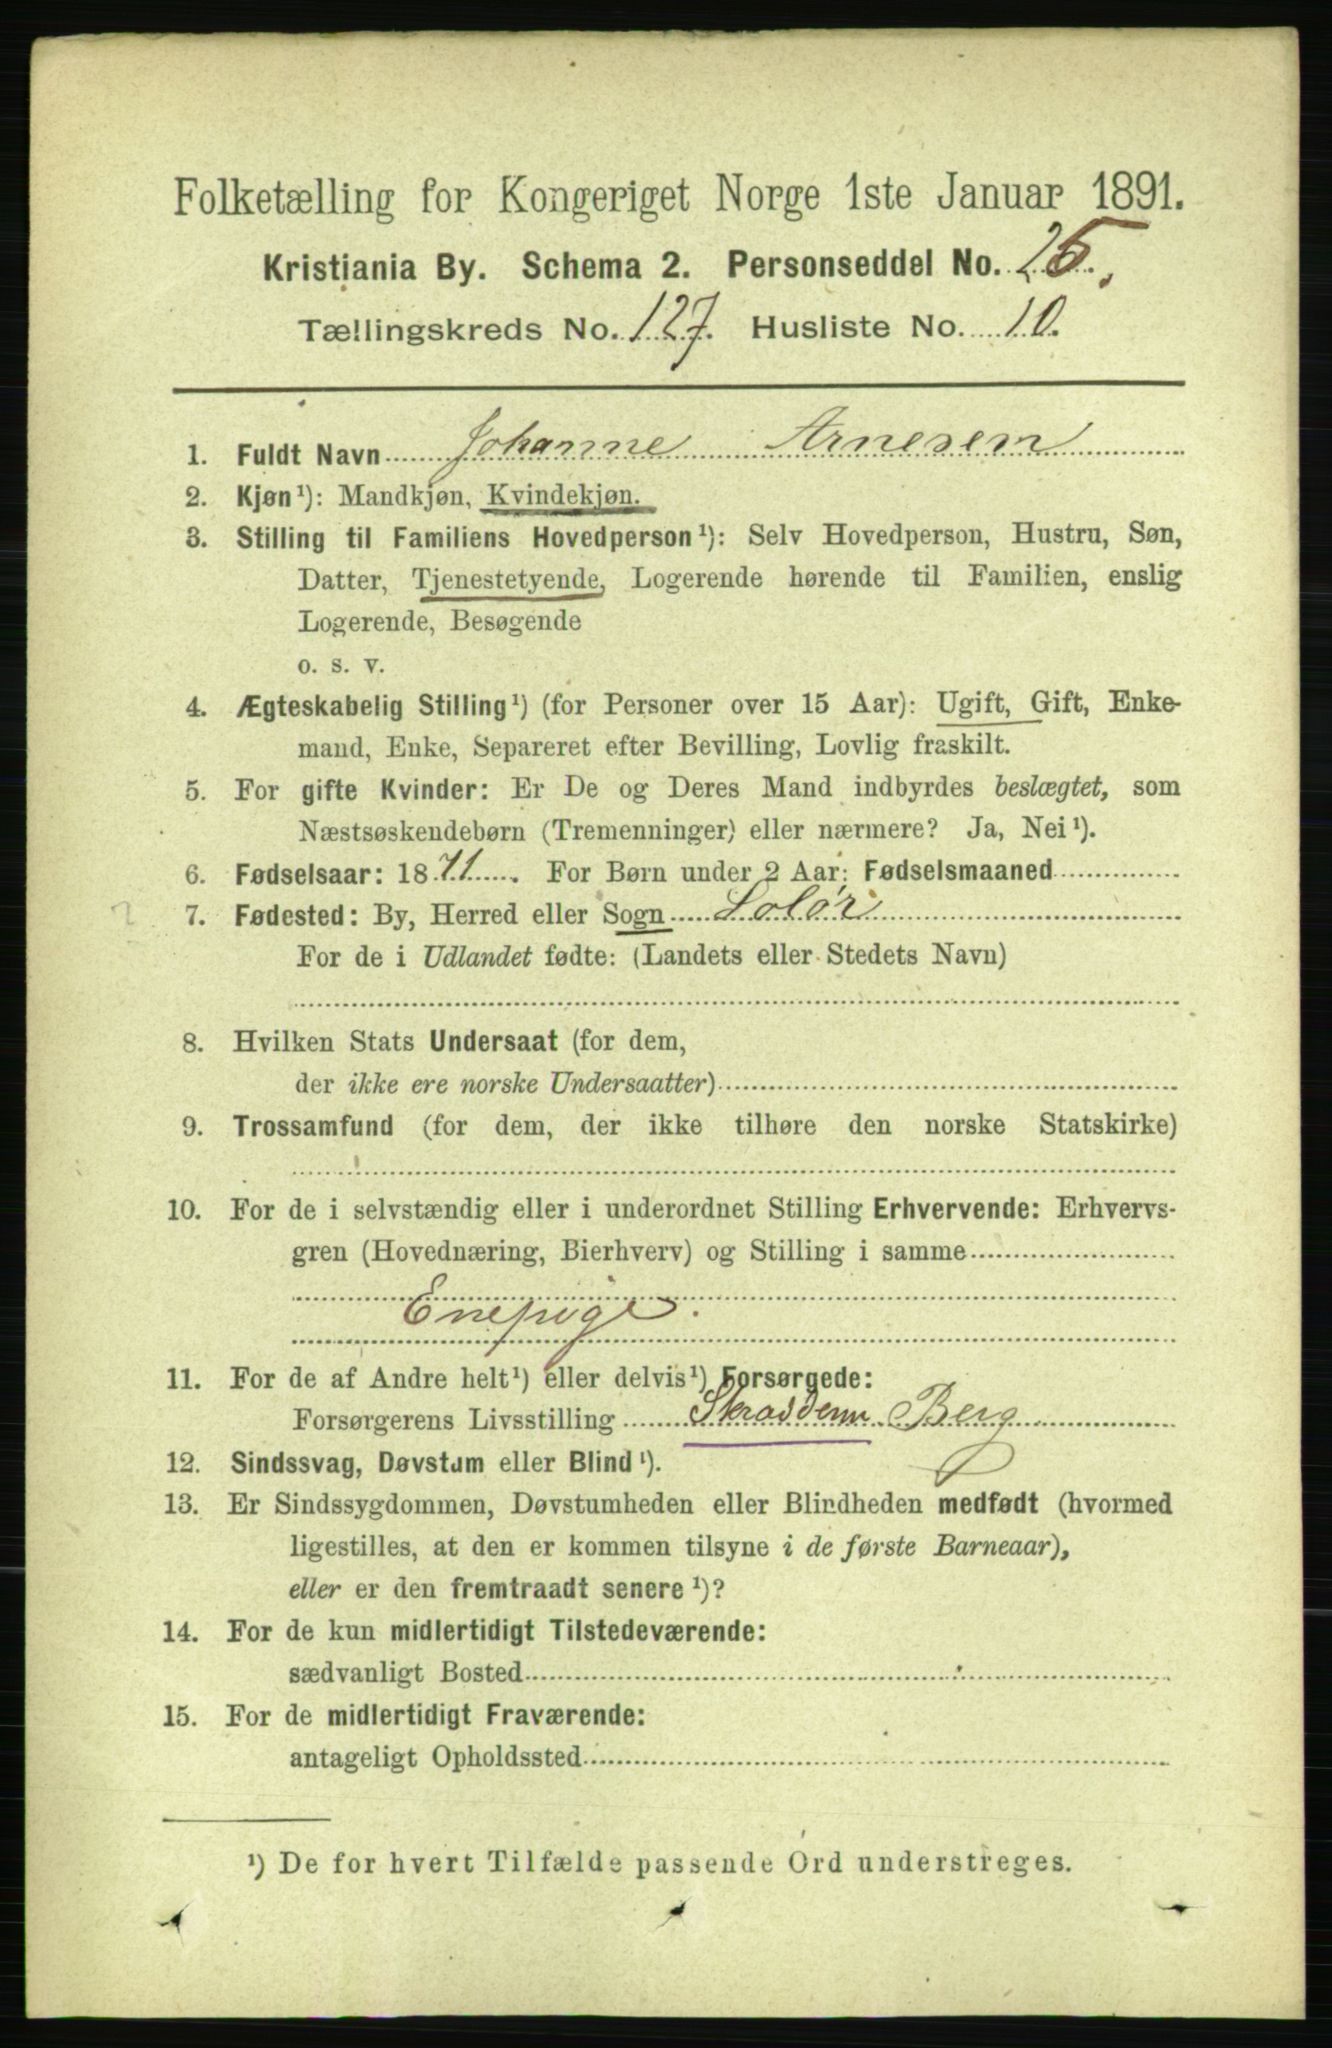 Folketælling for Kongeriget Norge 1ste Januar 1891.
Kristiania By. Schema 2. Personseddel No. 25.
Tællingskreds No. 127. Husliste No. 10.
1. Fuldt Navn Johanne Arnesen
2. Kjøn¹): Mandkjøn, Kvindekjøn.
3. Stilling til Familiens Hovedperson¹): Selv Hovedperson, Hustru, Søn,
Datter, Tjenestetyende, Logerende hørende til Familien, enslig
Logerende, Besøgende
o. s. v.
4. Ægteskabelig Stilling¹) (for Personer over 15 Aar): Ugift, Gift, Enke-
mand, Enke, Separeret efter Bevilling, Lovlig fraskilt.
5. For gifte Kvinder: Er De og Deres Mand indbyrdes beslægtet, som
Næstsøskendebørn (Tremenninger) eller nærmere? Ja, Nei¹).
6. Fødselsaar: 1871. For Børn under 2 Aar: Fødselsmaaned
7. Fødested: By, Herred eller Sogn Solør
For de i Udlandet fødte: (Landets eller Stedets Navn)
8. Hvilken Stats Undersaat (for dem,
der ikke ere norske Undersaatter)
9. Trossamfund (for dem, der ikke tilhøre den norske Statskirke)
10. For de i selvstændig eller i underordnet Stilling Erhvervende: Erhvervs-
gren (Hovednæring, Bierhverv) og Stilling i samme
Enepige.
11. For de af Andre helt¹) eller delvis¹) Forsørgede:
Forsørgerens Livsstilling Berg
12. Sindssvag, Døvstum eller Blind¹).
13. Er Sindssygdommen, Døvstumheden eller Blindheden medfødt (hvormed
ligestilles, at den er kommen tilsyne i de første Barneaar),
eller er den fremtraadt senere¹)?
14. For de kun midlertidigt Tilstedeværende:
sædvanligt Bosted
15. For de midlertidigt Fraværende:
antageligt Opholdssted
¹) De for hvert Tilfælde passende Ord understreges.